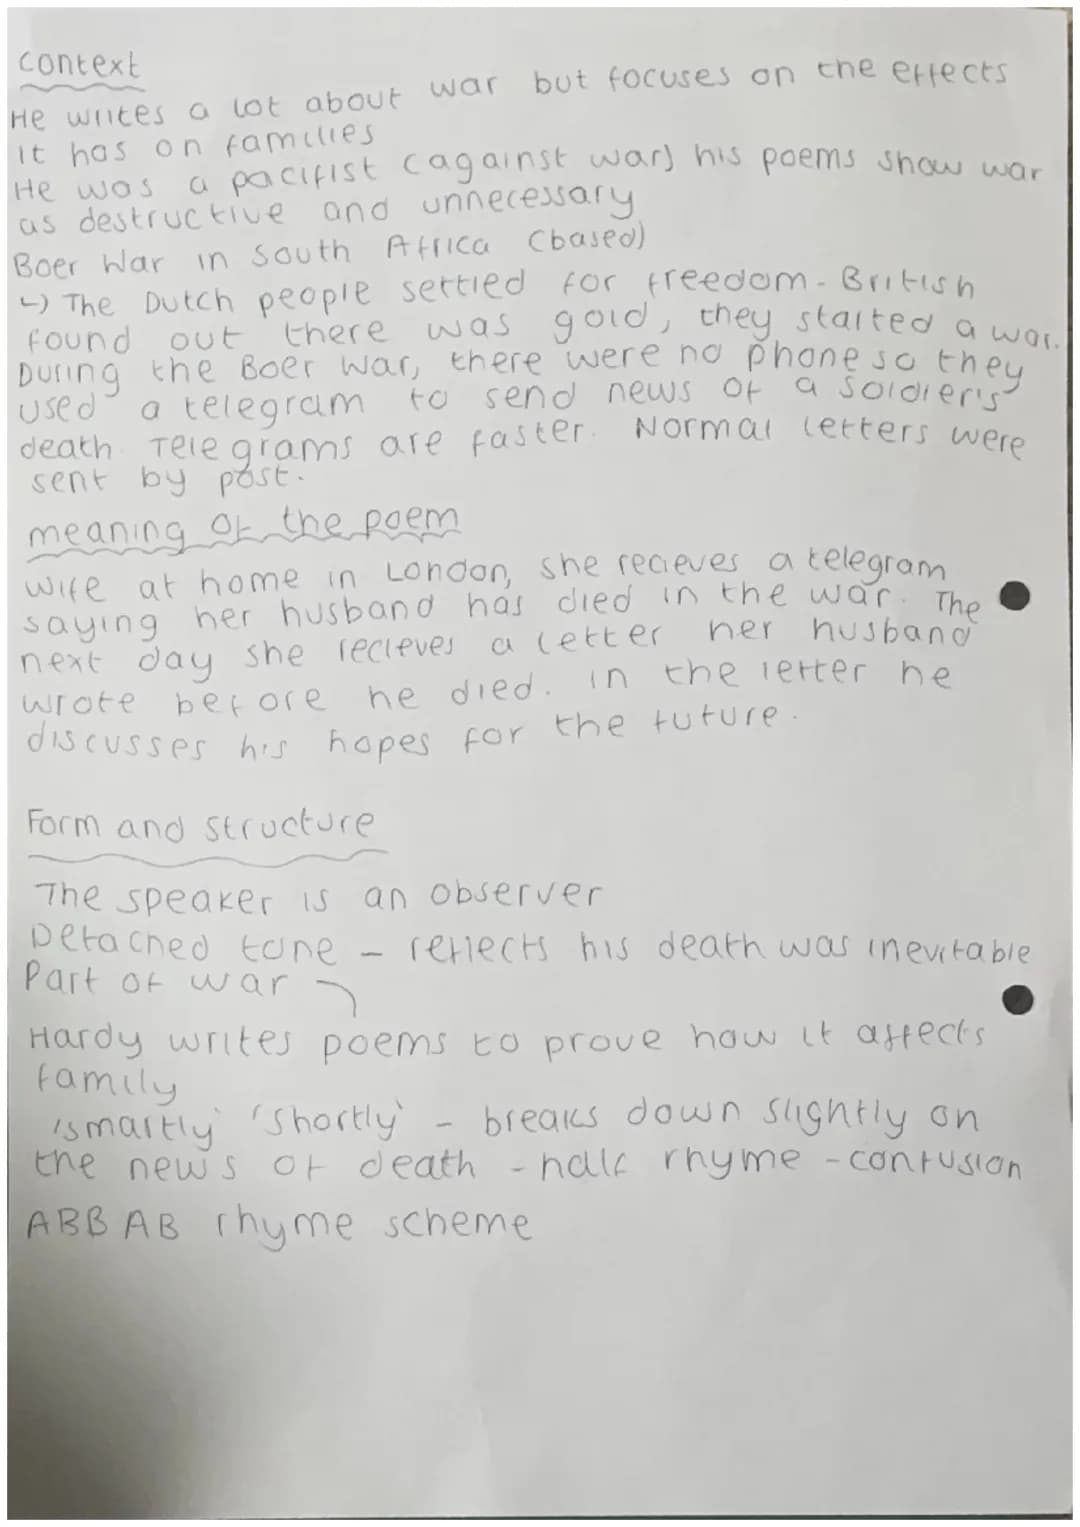 Context
He writes a lot about war but focuses on the effects
it has on families
He was a pacifist (against war) his poems show war
as destructive and unnecessary
Boer War in South Africa (based)
↳ The Dutch people settled for freedom - British
found out there was gold, they started a war.
During the Boer War, there were no phone so they
used a telegram to send news of a soldier's
death. Telegrams are faster. Normal letters were
sent by post.
meaning of the poem
Wife at home in London, she recieves a telegram
saying her husband has died in the war. The
next day she recieves a letter her husband
wrote before he died. In the letter he
discusses his hopes for the future.
Form and structure
The speaker is an observer
Detached tone - reflects his death was inevitable
Part of war
Hardy writes poems to prove how it affects
family
'smartly' 'shortly' - breaks down slightly on
the news of death - half rhyme - confusion
ABBAB rhyme scheme